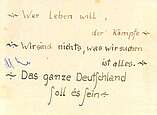 Wer Leben will,
der Kämpfe
Wir sind nichts, was wir suchen
ist alles.
Das ganze Deutschland
soll es sein